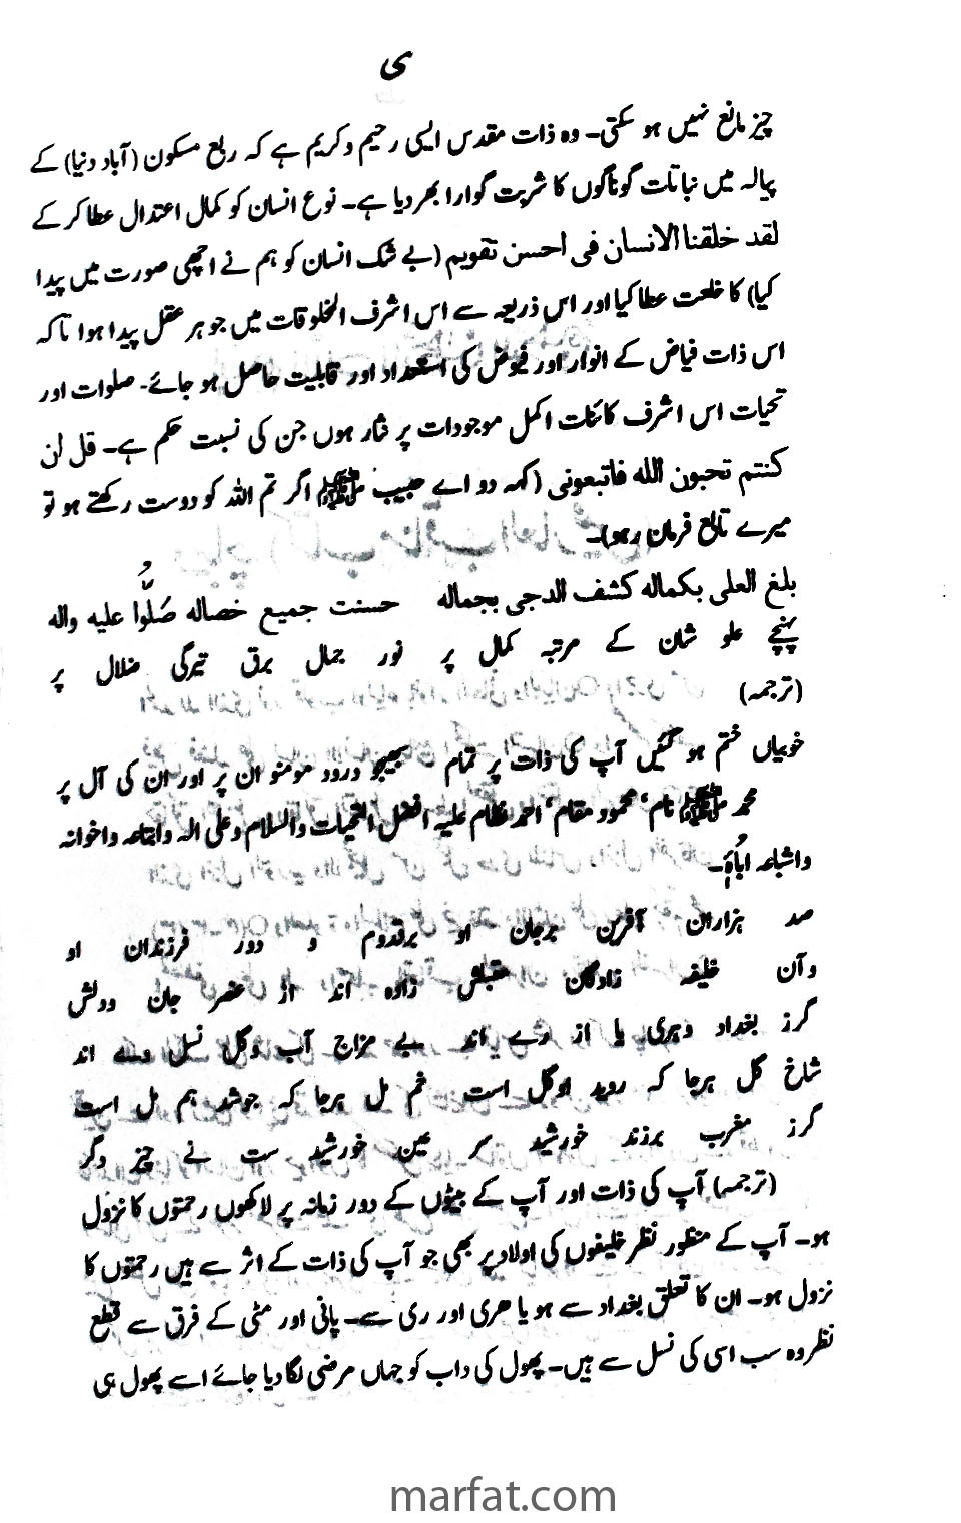 ی
چیز مانع نہیں ہو سکتی۔ وہ ذات مقدس ایسی رحیم و کریم ہے کہ ربع مسکون (آباد دنیا) کے
پیالہ میں نباتات گوناگوں کا شربت گوارا بھر دیا ہے۔ نوع انسان کو کمال اعتدال عطا کر کے
لقد خلقنا الانسان فی احسن تقویم (بے شک انسان کو ہم نے اچھی صورت میں پیدا
کیا) کا خلعت عطا کیا اور اس ذریعہ سے اس اشرف المخلوقات میں جوہر عقل پیدا ہوا تاکہ
اس ذات فیاض کے انوار اور فیوض کی استعداد اور قابلیت حاصل ہو جائے۔ صلوات اور
تحیات اس اشرف کائنات اکمل موجودات پر نثار ہوں جن کی نسبت حکم ہے۔ قل ان
کنتم تحبون اللہ فاتبعونی (کہہ دو اے حبیب ﷺ اگر تم اللہ کو دوست رکھتے ہو تو
میرے تابع فرمان رہو)۔
بلغ العلی بکمالہ کشف الدجی بجمالہ حسنت جمیع خصالہ صلوا علیہ والہ
پہنچے علو شان کے مرتبہ کمال پر نور جمال برق تیرگی ضلال پر
(ترجمہ)
خوبیاں ختم ہو گئیں آپ کی ذات پر تمام بھیجو درود مومنو ان پر اور ان کی آل پر
محمد ﷺ نام‘ محمود مقام‘ احمد نظام علیہ افضل التحیات والسلام وعلی الہ واتباعہ واخوانہ
واشباعہ اباؤ۔
صد ہزاران آفرین برجان او برقدوم و دور فرزندان او
وآن خلیفہ زادگان مقبلش زادہ اند از عنصر جان وولش
گرز بغداد وہری یا از رے اند بے مزاج آب وگل نسل وے اند
شاخ گل ہرجا کہ روید اوگل است خم مل ہرجا کہ جوشد ہم مل است
گرز مغرب برزند خورشید سر عین خورشید ست نے چیز دگر
(ترجمہ) آپ کی ذات اور آپ کے بیٹوں کے دور زمانہ پر لاکھوں رحمتوں کا نزول
ہو۔ آپ کے منظور نظر خلیفوں کی اولاد پر بھی جو آپ کی ذات کے اثر سے ہیں رحمتوں کا
نزول ہو۔ ان کا تعلق بغداد سے ہو یا ھری اور ری سے۔ پانی اور مٹی کے فرق سے قطع
نظر وہ سب اسی کی نسل سے ہیں۔ پھول کی داب کو جہاں مرضی لگا دیا جائے اسے پھول ہی
marfat.com